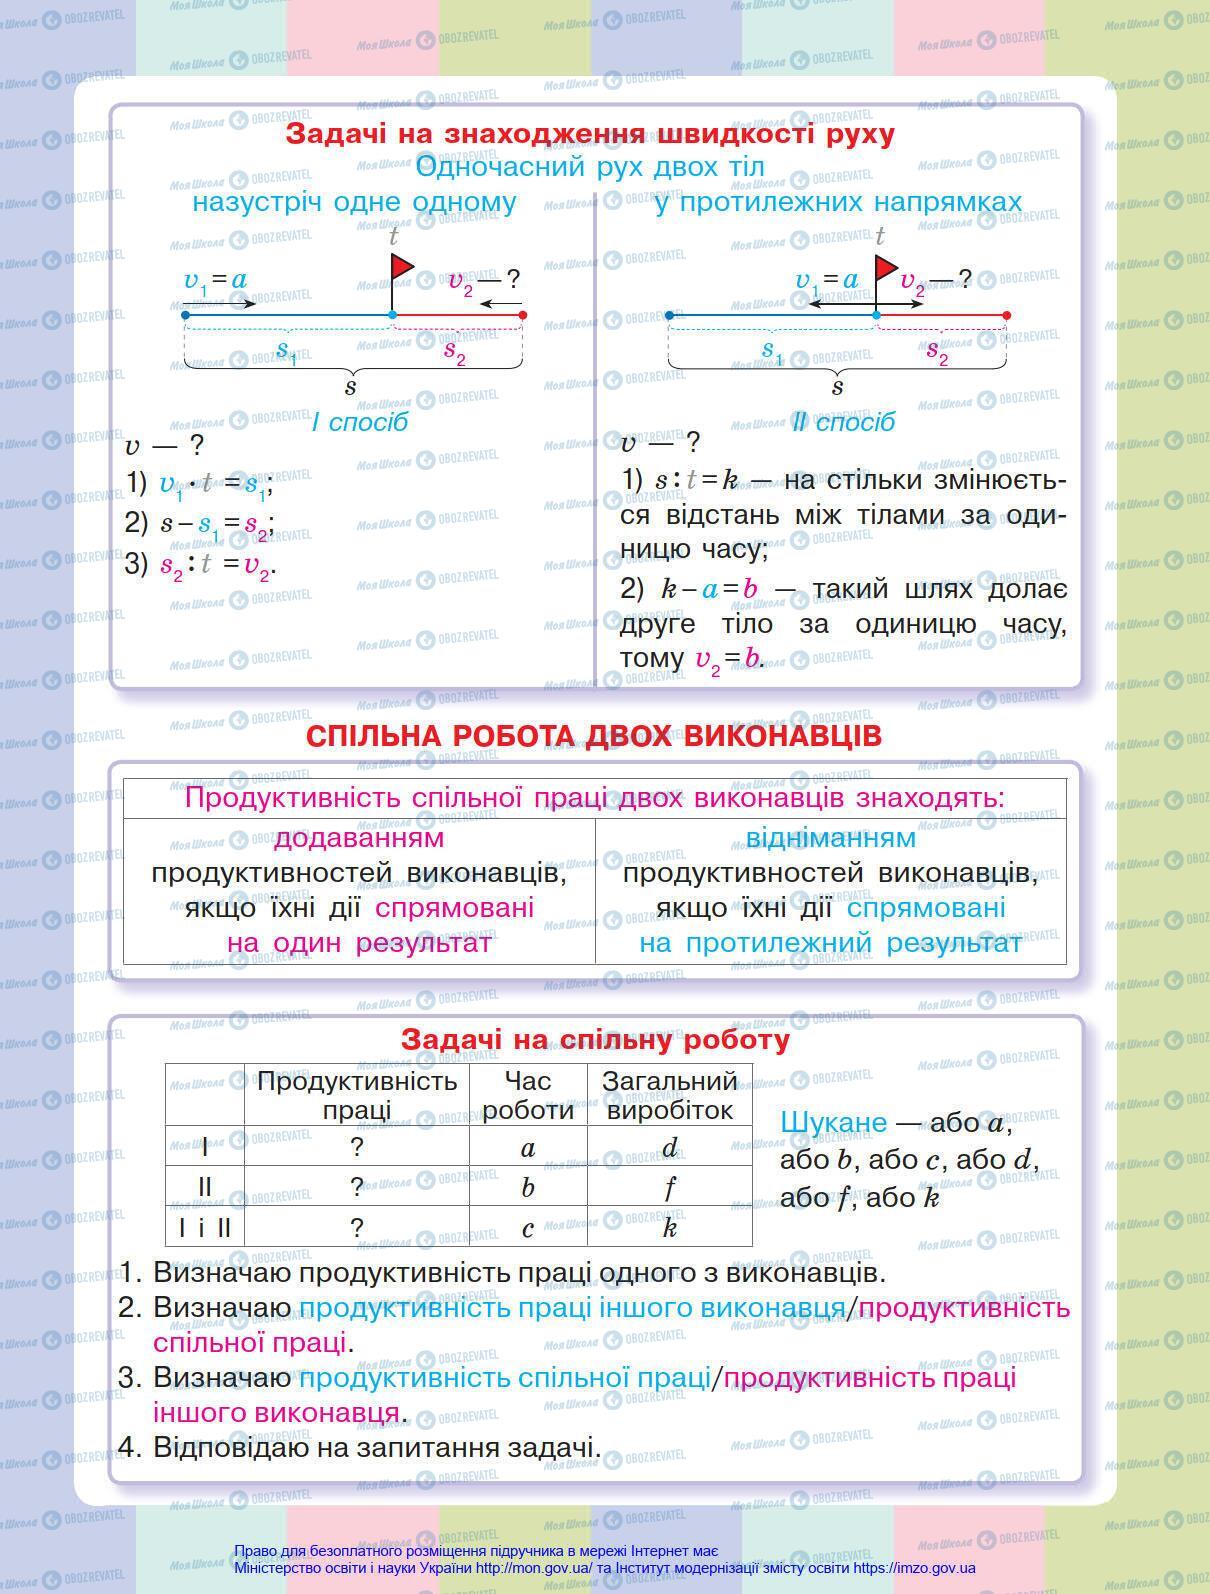 Задачі на знаходження швидкості руху
Одночасний рух двох тіл
назустріч одне одному
t
v₁ = a
v₂ — ?
s₁
s₂
s
І спосіб
v — ?
1) v₁ · t = s₁;
2) s – s₁ = s₂;
3) s₂ : t = v₂.
у протилежних напрямках
t
v₁ = a
v₂ — ?
s₁
s₂
s
ІІ спосіб
v — ?
1) s : t = k — на стільки змінюєть-
ся відстань між тілами за оди-
ницю часу;
2) k – a = b — такий шлях долає
друге тіло за одиницю часу,
тому v₂ = b.
СПІЛЬНА РОБОТА ДВОХ ВИКОНАВЦІВ
Продуктивність спільної праці двох виконавців знаходять:
додаванням
продуктивностей виконавців,
якщо їхні дії спрямовані
на один результат
відніманням
продуктивностей виконавців,
якщо їхні дії спрямовані
на протилежний результат
Задачі на спільну роботу
Продуктивність праці
Час роботи
Загальний виробіток
І ? a d
ІІ ? b f
І і ІІ ? c k
Шукане — або a,
або b, або c, або d,
або f, або k
1. Визначаю продуктивність праці одного з виконавців.
2. Визначаю продуктивність праці іншого виконавця/продуктивність
спільної праці.
3. Визначаю продуктивність спільної праці/продуктивність праці
іншого виконавця.
4. Відповідаю на запитання задачі.
Право для безоплатного розміщення підручника в мережі Інтернет має
Міністерство освіти і науки України http://mon.gov.ua/ та Інститут модернізації змісту освіти https://imzo.gov.ua
Моя Школа OBOZREVATEL